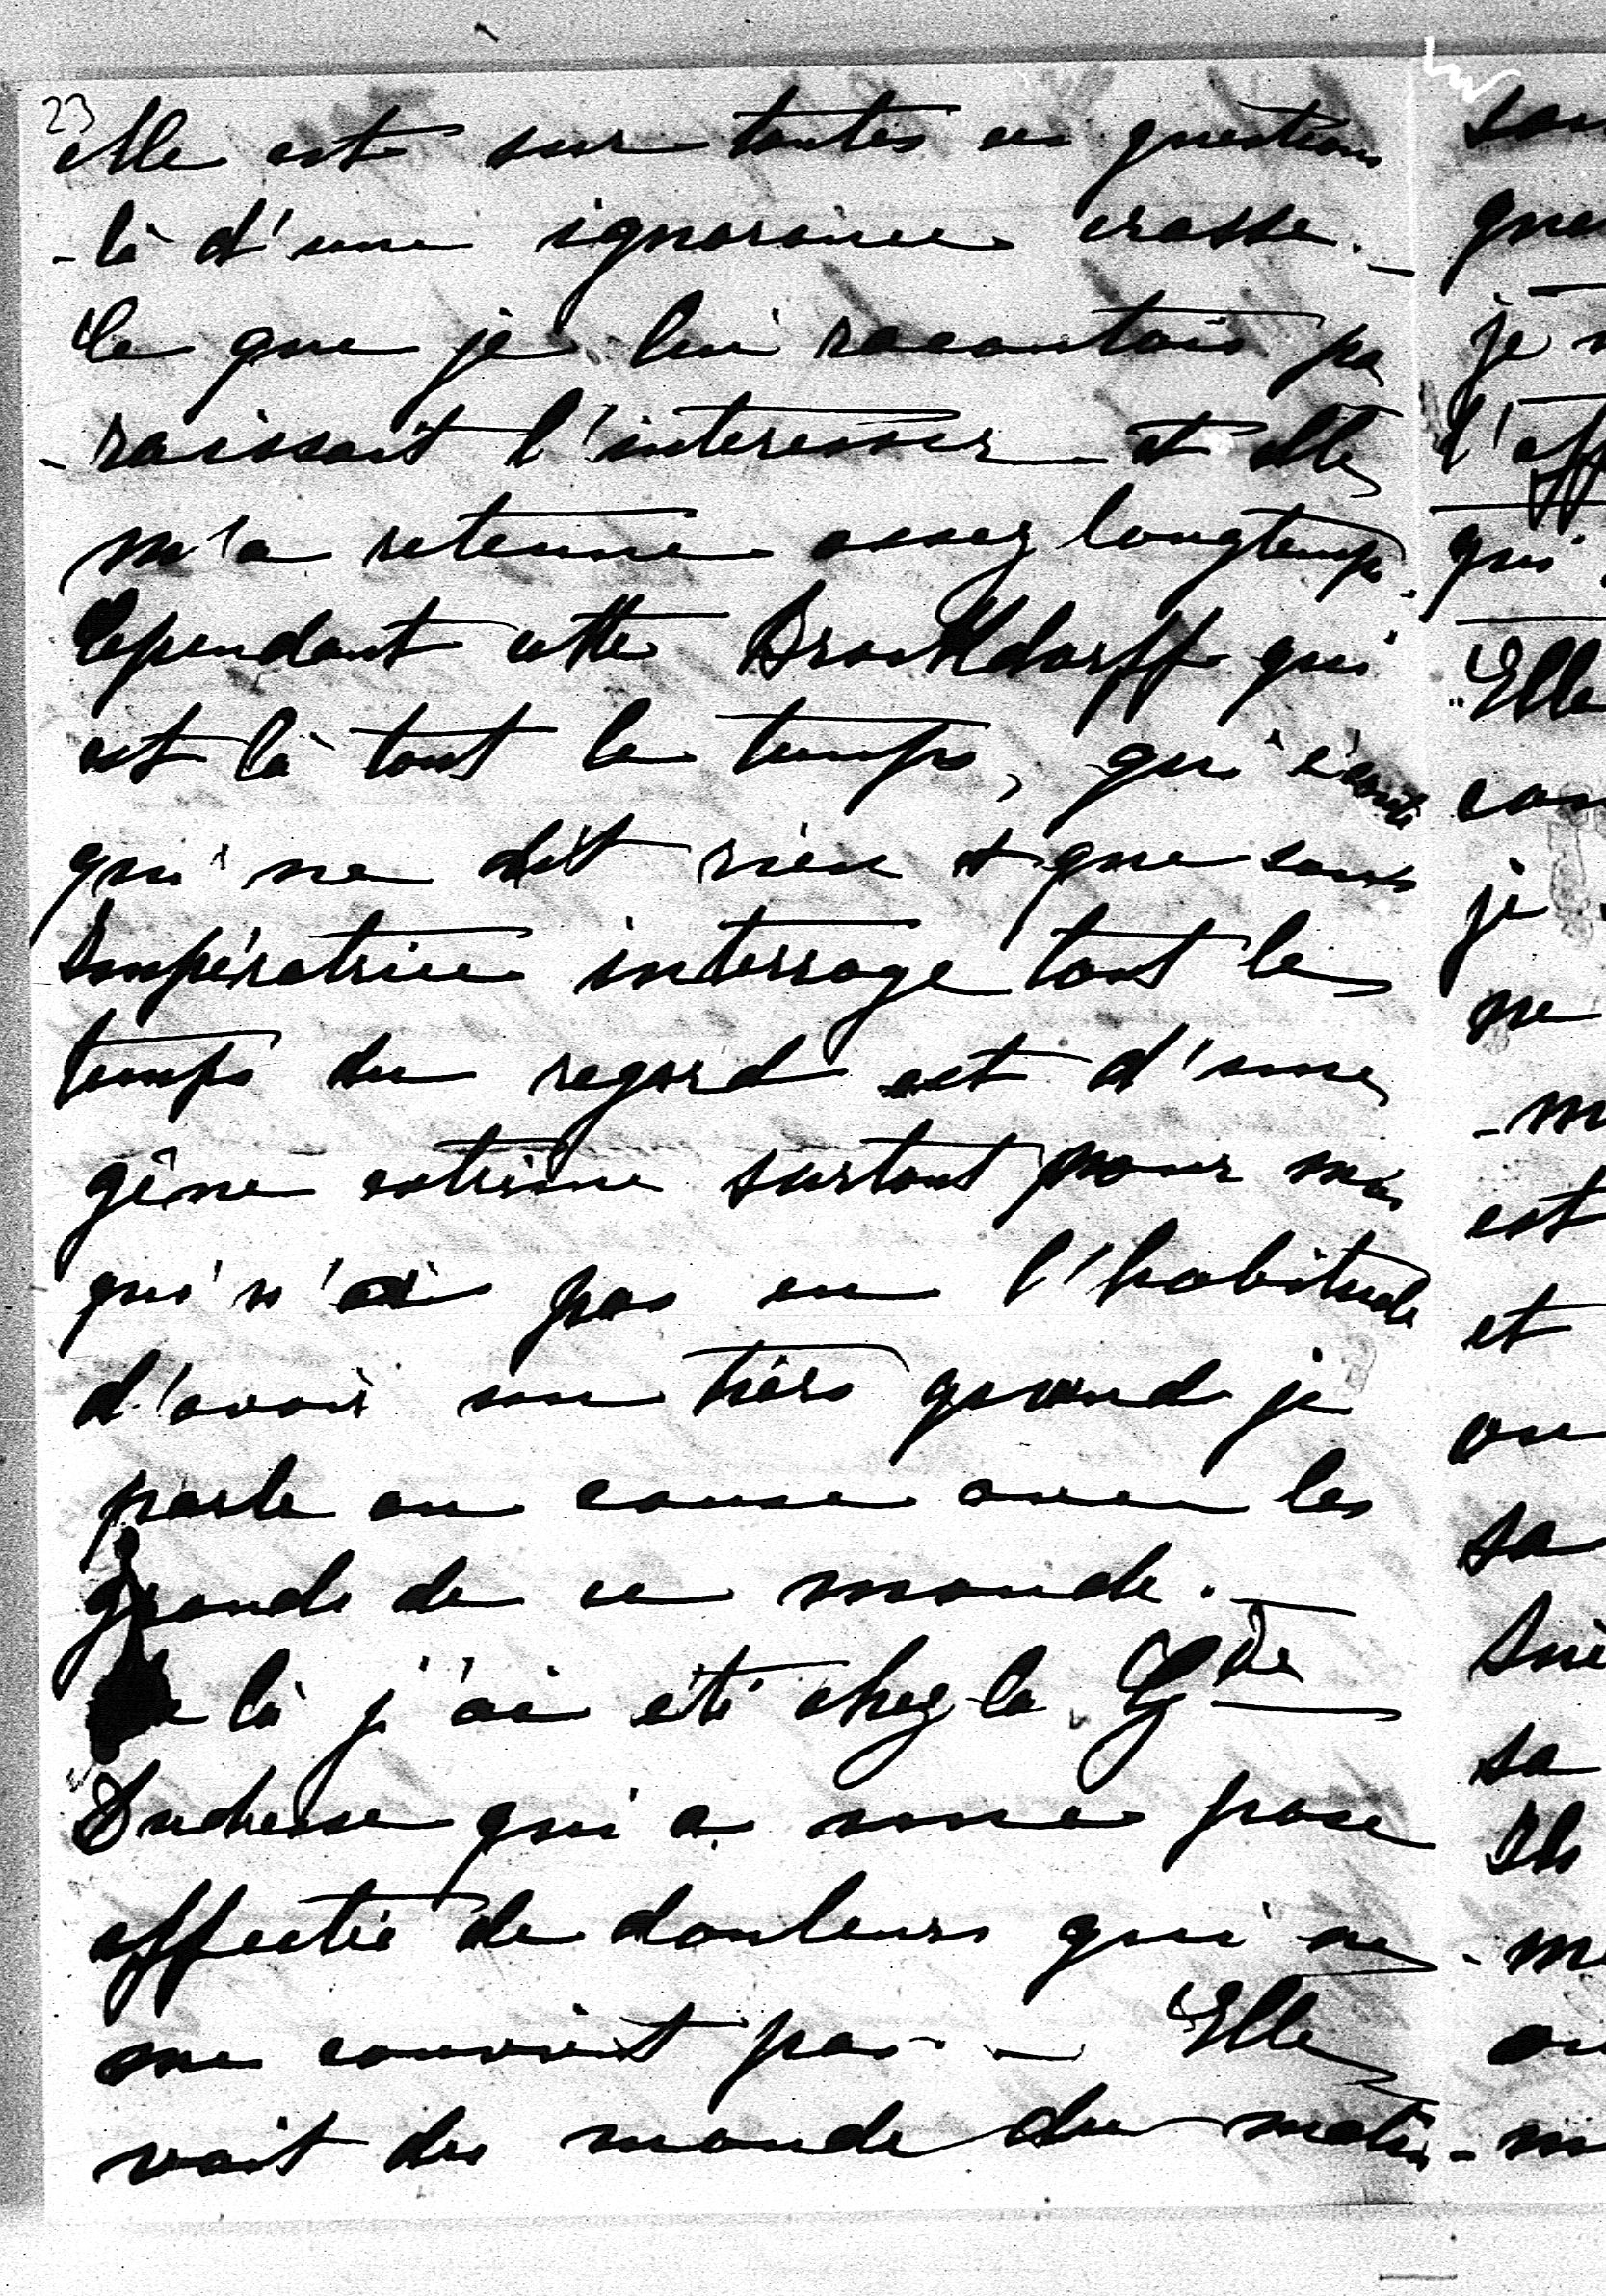 23
elle est sur toutes ces questions
-là d'une ignorance crasse. _
Ce que je lui racontais pa
-raissait l'interesser et elle
m'a retenue assez longtemps.
Cependant cette Brockdorff qui
est là tout le temps, qui écoute
qui ne dit rien et que
Impératrice interroge tout le
temps du regard est d'une
gêne extrême surtout pour moi
qui n'ai pas eu l'habitude
d'avoir un tiers quand je
parle ou cause avec les
grands de ce monde. _
De là j'ai été chez la Gde
Duchesse qui a une pose
affectée de douleurs qui ne
me convient pas. _ Elle
voit du monde du matin
son
que
je
l'aff
qui
Elle
con
je
ne
-m
est
et
ou
sa
sa
Ils
-me
ou
-m